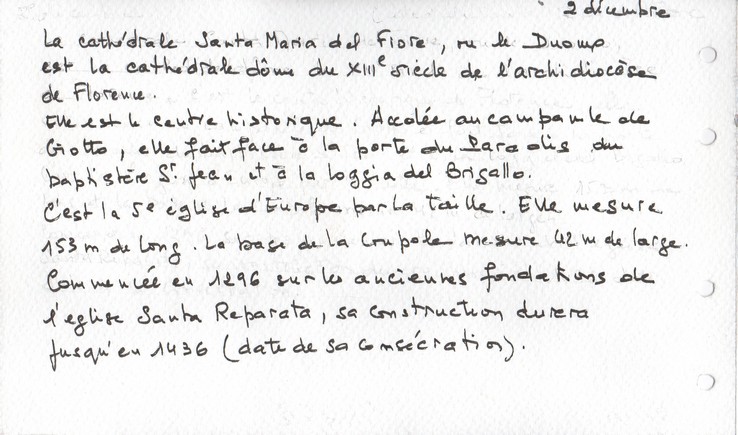 2 décembre
La cathédrale Santa Maria del Fiore, ou le Duomo
est la cathédrale dôme du XIIIe siècle de l'archidiocèse
de Florence.
Elle est le centre historique. Accolée au campanile de
Giotto, elle fait face à la porte du Paradis du
baptistère St Jean et à la loggia del Bigallo.
C'est la 5e église d'Europe par la taille. Elle mesure
153 m de long. La base de la coupole mesure 42 m de large.
Commencée en 1296 sur les anciennes fondations de
l'église Santa Reparata, sa construction durera
jusqu'en 1436 (date de sa consécration).